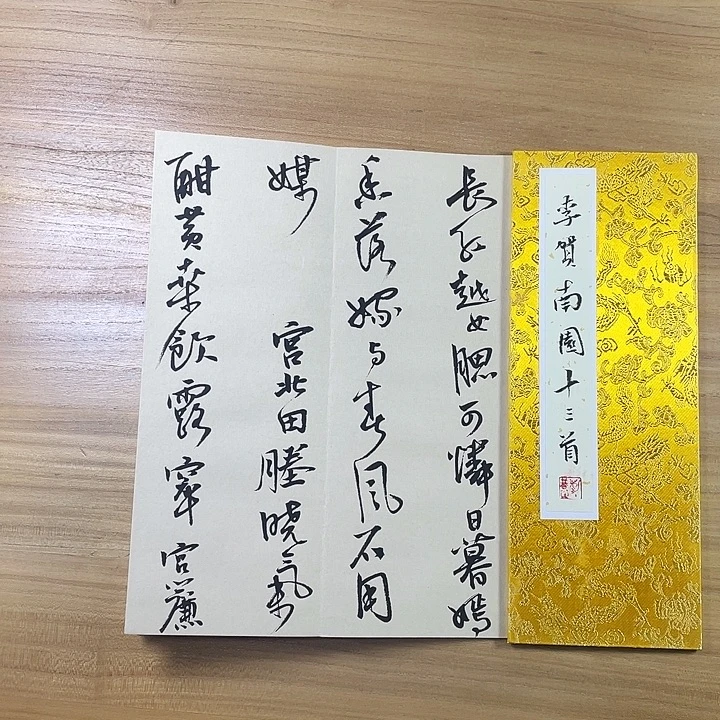 李賀南園十三首
長紅越女腮可憐日暮嫣
香落嫁与春風不用
媒 宮北田塍曉氣
酣黄桑飲露窣宮簾